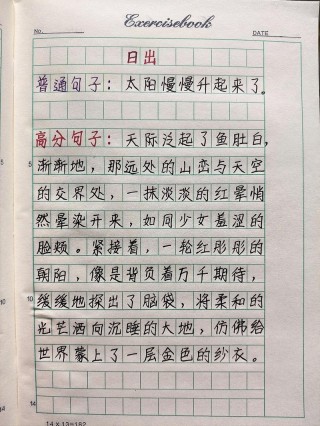 Exercisebook
No.
DATE
日出
普通句子：太阳慢慢升起来了。
高分句子：天际泛起了鱼肚白，
5
渐渐地，那远处的山峦与天空
的交界处，一抹淡淡的红晕悄
然晕染开来，如同少女羞涩的
脸颊。紧接着，一轮红彤彤的
朝阳，像是背负着万千期待，
10
缓缓地探出了脑袋，将柔和的
光芒洒向沉睡的大地，仿佛给
世界蒙上了一层金色的纱衣。
14
14×13=182